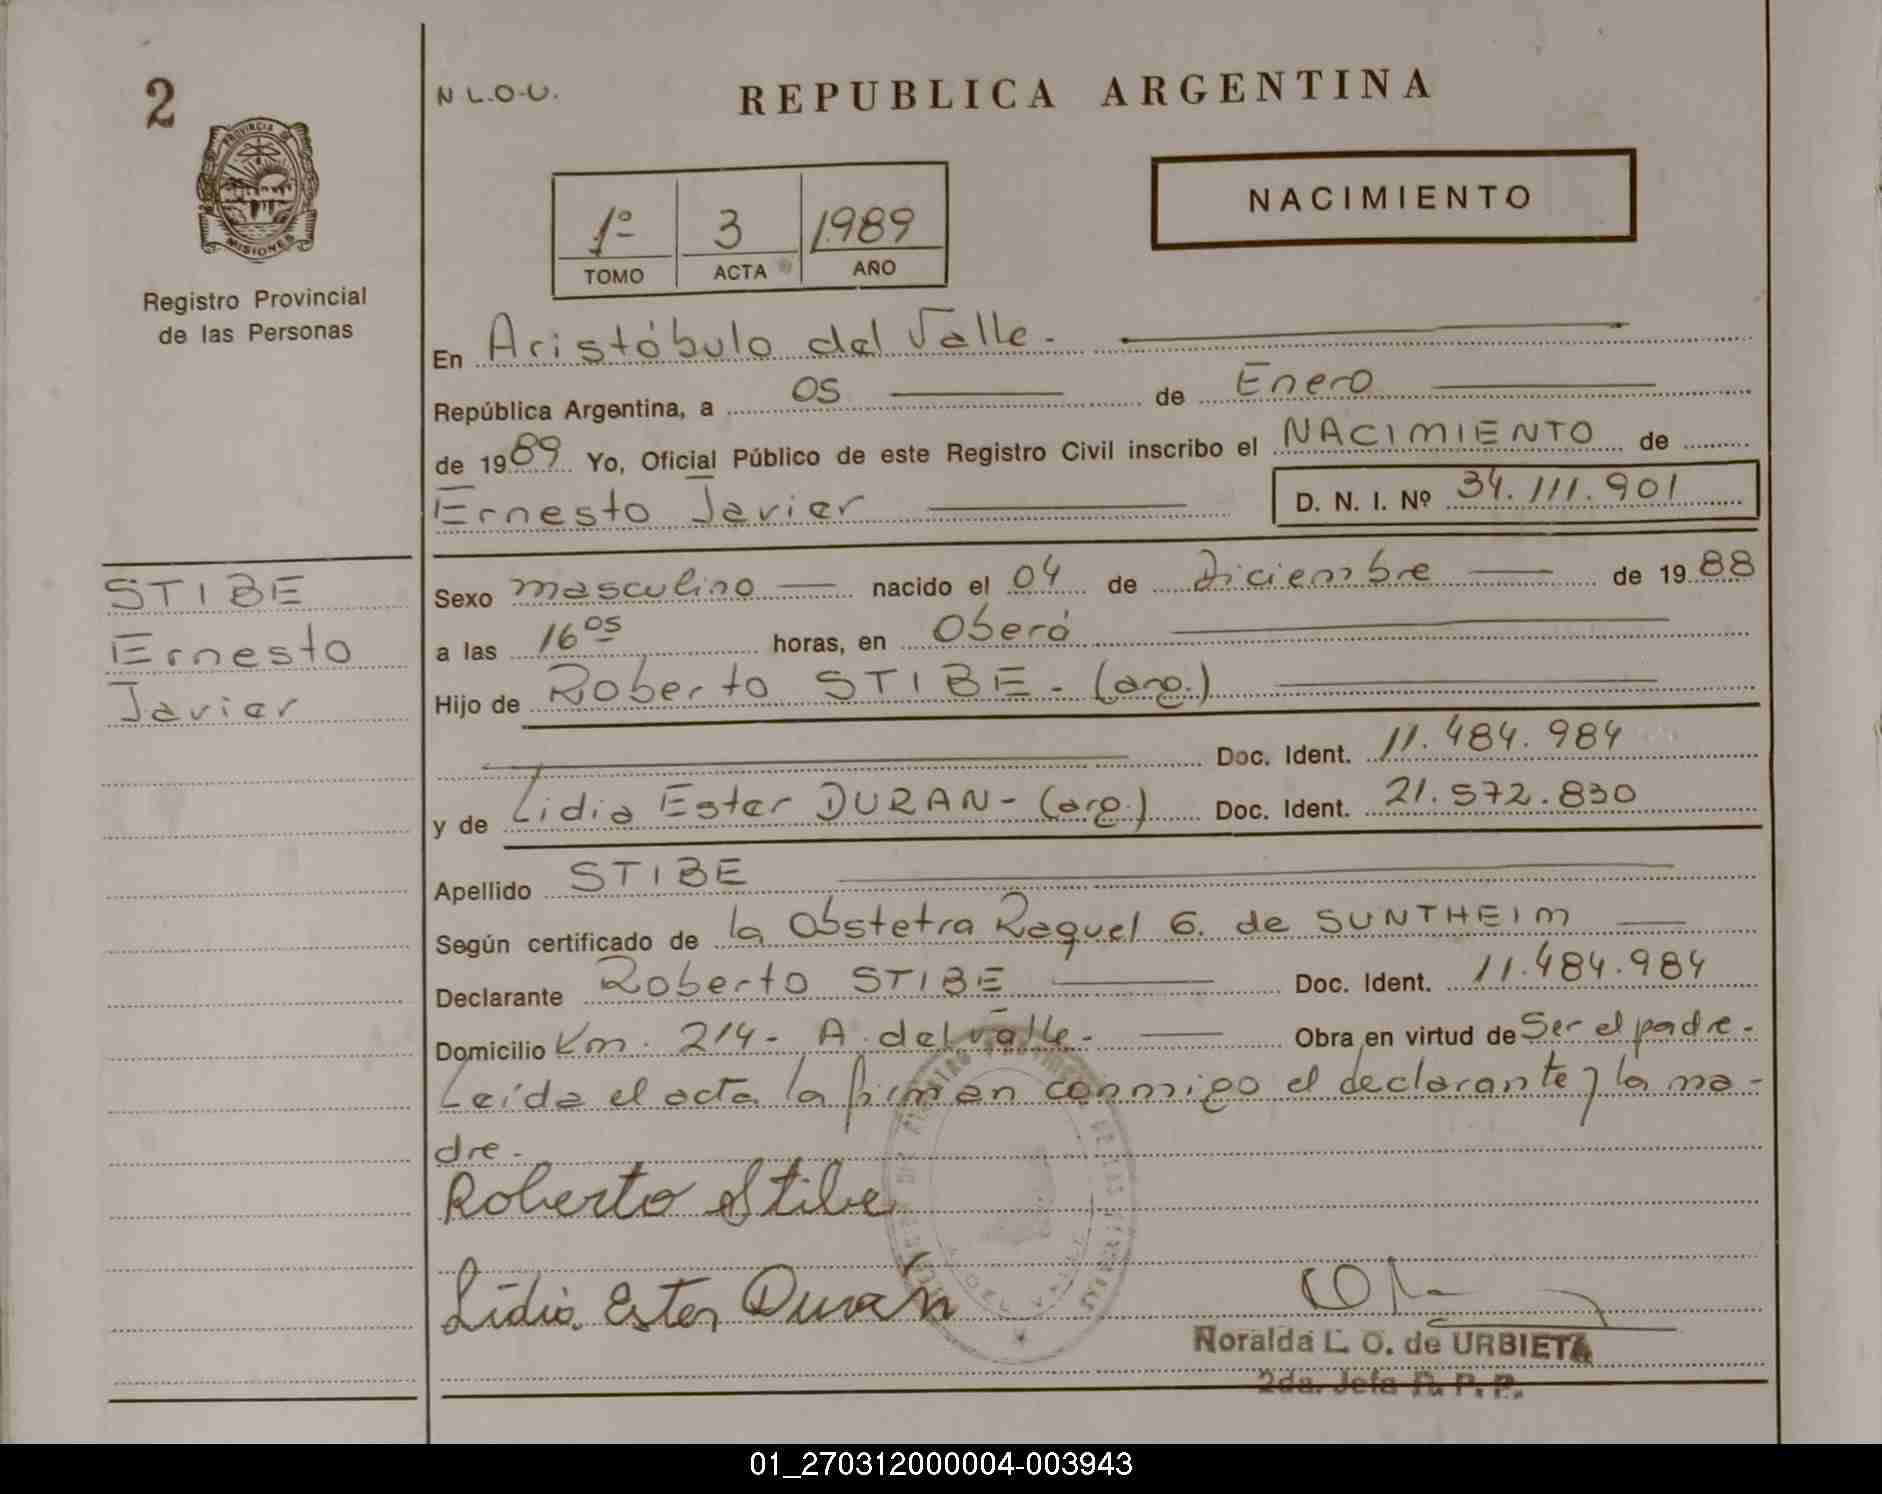 2
N L.O.U.
REPUBLICA ARGENTINA
PROVINCIA DE
MISIONES
Registro Provincial
de las Personas
1º 3 1989
TOMO ACTA AÑO
NACIMIENTO
En Aristóbulo del Valle.
República Argentina, a 05 de Enero
de 1989 Yo, Oficial Público de este Registro Civil inscribo el NACIMIENTO de
Ernesto Javier D. N. I. Nº 34.111.901
STIBE
Ernesto
Javier
Sexo masculino nacido el 04 de Diciembre de 1988
a las 16 05 horas, en Oberá
Hijo de Roberto STIBE - (arg.)
Doc. Ident. 11.484.984
y de Lidia Ester DURAN - (arg.) Doc. Ident. 21.572.830
Apellido STIBE
Según certificado de la Obstetra Raquel G. de SUNTHEIM
Declarante Roberto STIBE Doc. Ident. 11.484.984
Domicilio Km. 214 - A. del Valle - Obra en virtud de Ser el padre -
Leída el acta la firman conmigo el declarante y la ma-
dre -
Roberto Stibe
Lidia Ester Duran
Noralda L. O. de URBIETA
2da. Jefa R. P. P.
01_270312000004-003943